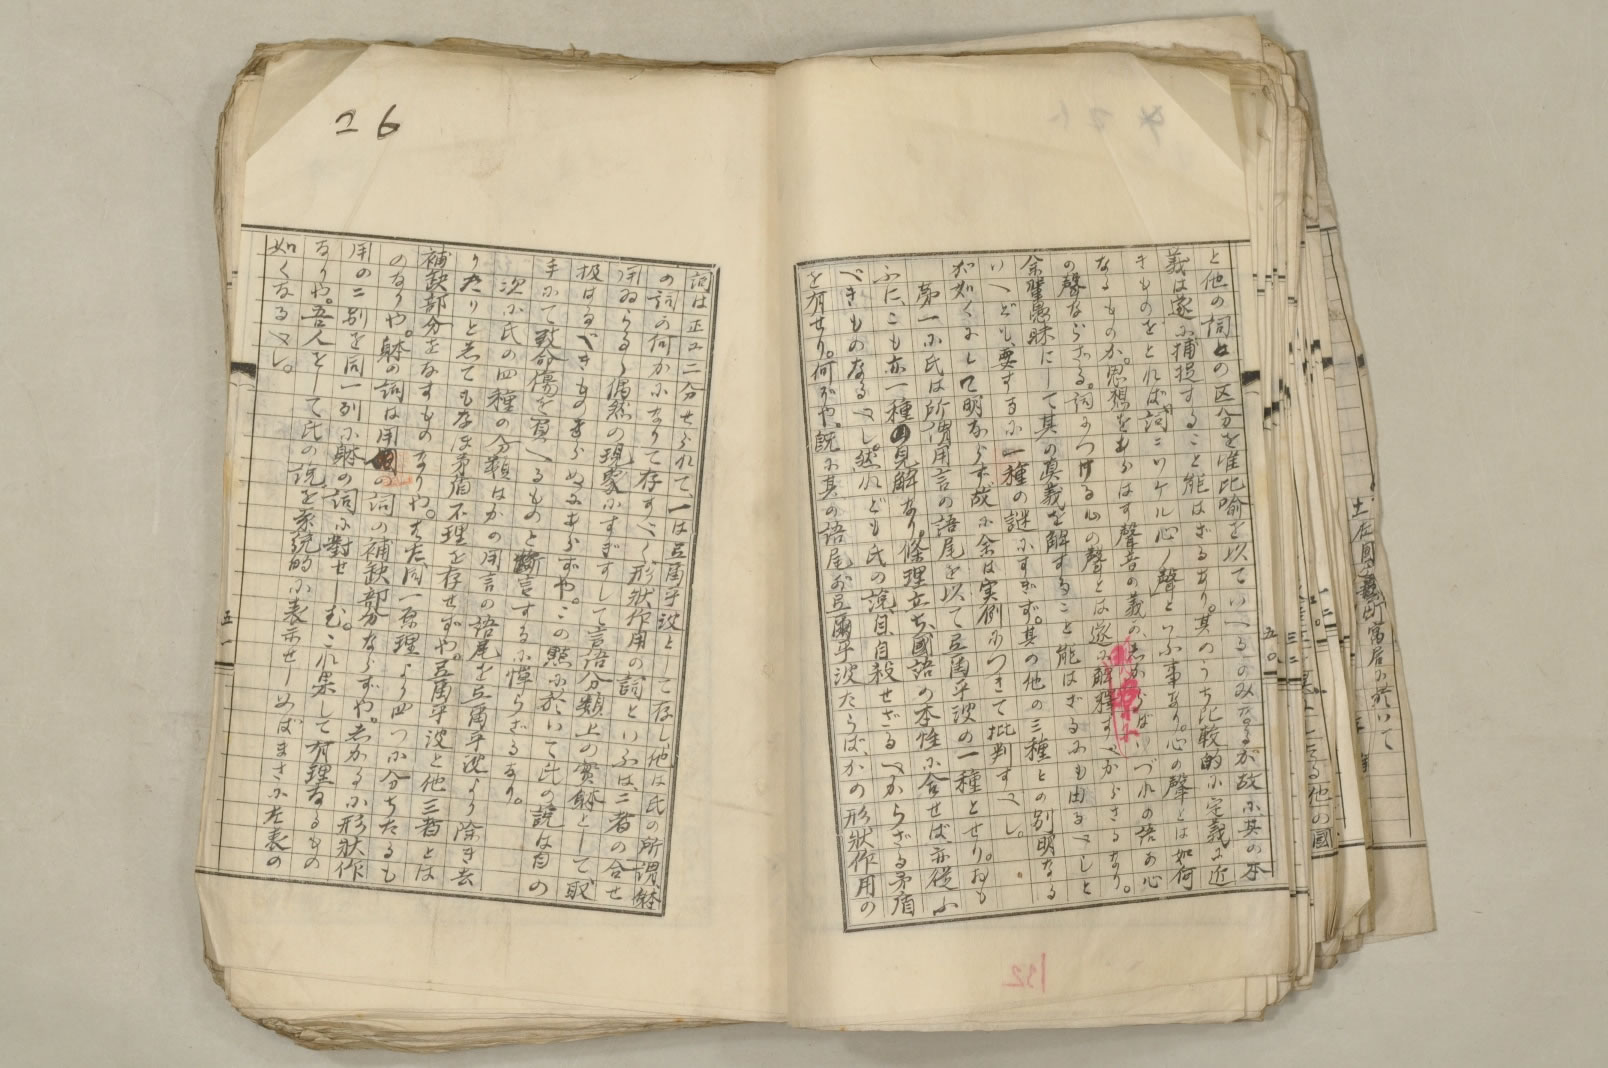 と他の詞との区分を唯比喩を以ていへるのみなるが故に其の本
義は遂に捕捉すること能はざるなり。其のうち比較的に定義に近
きものをとれば「詞ニツケル心ノ聲」といふ事なり。心の聲とは如何
なるものか。思想をあらはす聲音の義か、しからばいづれの語か心
の聲ならざる。詞につける心の聲とは遂に解釋すべからざるなり。
余輩愚昧にして其の眞義を解すること能はざるにも由るべしと
いへども、要するに一種の謎にすぎず。其の他の三種との別明なる
が如くにして明ならず。故に余は実例につきて批判すべし。
第一に氏は所謂用言の語尾を以て弖爾乎波の一種とせり。おも
ふに、こも亦一種の見解なり。條理立ち、國語の本性に合せば亦従ふ
べきものなるべし。然れども氏の説、自、自殺せざるべからざる矛盾
を有せり。何ぞや、既に其の語尾が弖爾乎波たらば、かの形狀作用の
詞は正に二分せられて、一は弖爾乎波として存し、他は氏の所謂躰
の詞か何かになりて存すべく、形狀作用の詞といふは二者の合せ
用ゐらるゝ偶然の現象にすぎずして言語分類上の實躰として取
扱はるべきものならぬにあらずや。この點に於いて氏の説は自の
手にて致命傷を負へるものと斷言するに憚らざるなり。
次に氏の四種の分類はかの用言の語尾を弖爾乎波より除き去
りたりとしてもなほ矛盾不理を存せずや。弖爾乎波と他三者とは
補缺部分をなすものなりや。又同一原理より四つに分ちたるも
のなりや。躰の詞は用の詞の補缺部分ならずや。しかるに形狀作
用の二別を同一列に躰の詞に對せしむ。これ果して有理なるもの
なりや。吾人をして氏の説を系統的に表示せしめばまさに左表の
如くなるべし。
五〇
五一
26
132
土佐國
富居に於いて